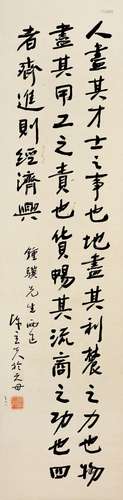 人盡其才士之事也地盡其利農之力也物
盡其用工之責也貨暢其流商之功也四
者齊進則經濟興
鍾驥先生
陳立夫於天母